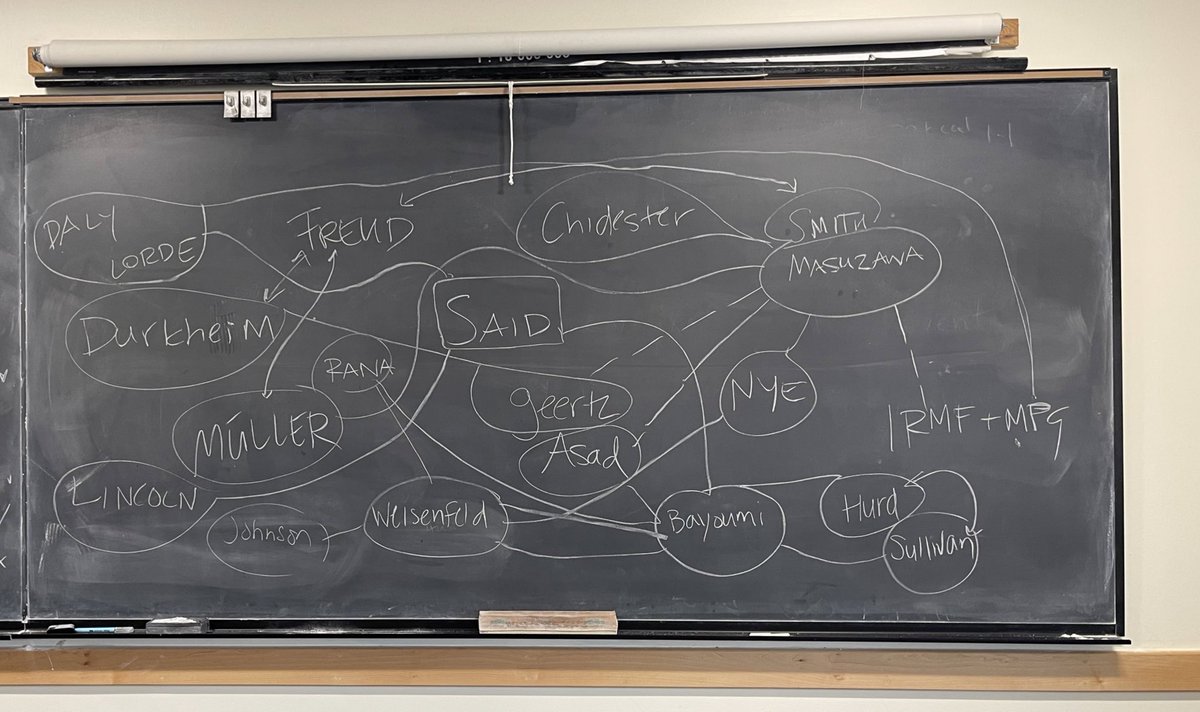 DALY
LORDE
FREUD
Chidester
SMITH
MASUZAWA
Durkheim
SAID
RANA
geertz
NYE
MÜLLER
Asad
IRMF + MPG
LINCOLN
Johnson
Weisenfeld
Bayoumi
Hurd
Sullivan